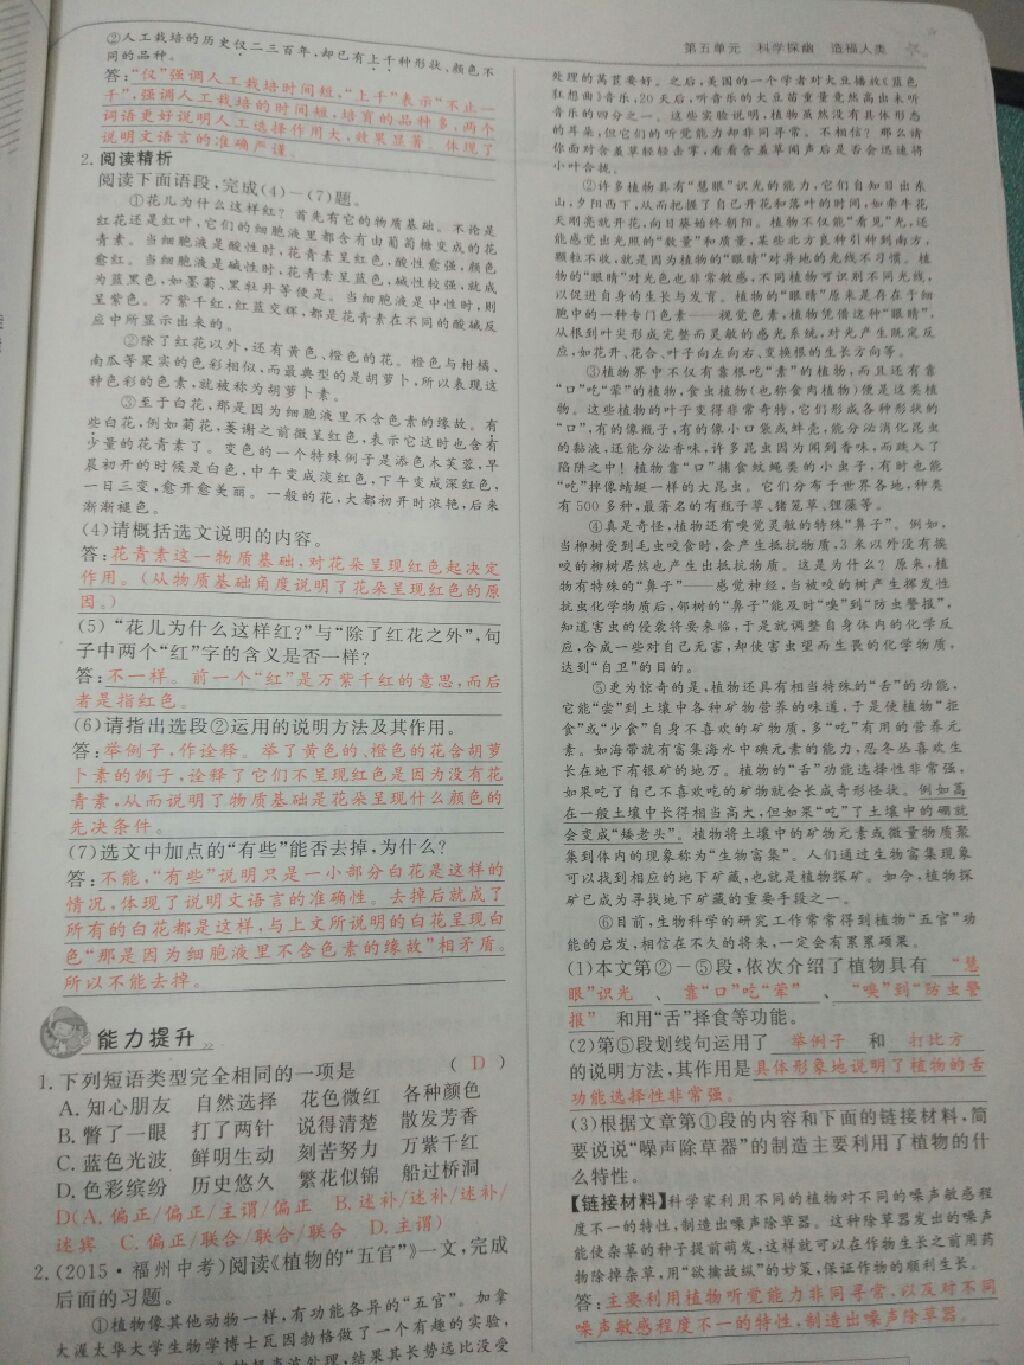 第五单元 科学探幽 造福人类
②人工栽培的历史仅二三百年,却已有上千种形状、颜色不
同的品种。
答:“仅”强调人工栽培时间短,“上千”表示“不止一
千”,强调人工栽培的时间短,培育的品种多,两个
词语更好说明人工选择作用大,效果显著。体现了
说明文语言的准确严谨。
2. 阅读精析
阅读下面语段,完成(4)-(7)题。
①花儿为什么这样红?首先有它的物质基础。不论是
红花还是红叶,它们的细胞液里都含有由葡萄糖变成的花
青素。当细胞液是酸性时,花青素呈红色,酸性愈强,颜色
愈红。当细胞液是碱性时,花青素呈蓝色,碱性较强,就成
为蓝黑色,如墨菊、黑牡丹等便是。当细胞液是中性时,则
呈紫色。万紫千红,红蓝交辉,都是花青素在不同的酸碱反
应中所显示出来的。
②除了红花以外,还有黄色、橙色的花。橙色与柑橘、
南瓜等果实的色彩相似,而最典型的是胡萝卜,所以表现这
种色彩的色素,就被称为胡萝卜素。
③至于白花,那是因为细胞液里不含色素的缘故。有
些白花,例如菊花,萎谢之前微呈红色,表示它这时也含有
少量的花青素了。变色的一个特殊例子是添色木芙蓉,早
晨初开的时候是白色,中午变成淡红色,下午变成深红色,
一日三变,愈开愈美丽。一般的花,大都初开时浓艳,后来
渐渐褪色。
(4)请概括选文说明的内容。
答:花青素这一物质基础,对花朵呈现红色起决定
作用。(从物质基础角度说明了花朵呈现红色的原
因。)
(5)“花儿为什么这样红?”与“除了红花之外”,句
子中两个“红”字的含义是否一样?
答:不一样。前一个“红”是万紫千红的意思,而后
者是指红色。
(6)请指出选段②运用的说明方法及其作用。
答:举例子,作诠释。举了黄色的、橙色的花含胡萝
卜素的例子,诠释了它们不呈现红色是因为没有花
青素,从而说明了物质基础是花朵呈现什么颜色的
先决条件。
(7)选文中加点的“有些”能否去掉,为什么?
答:不能,“有些”说明只是一小部分白花是这样的
情况,体现了说明文语言的准确性。去掉后就成了
所有的白花都是这样,与上文所说明的白花呈现白
色“那是因为细胞液里不含色素的缘故”相矛盾。
所以不能去掉。
能力提升
1. 下列短语类型完全相同的一项是 ( D )
A. 知心朋友 自然选择 花色微红 各种颜色
B. 瞥了一眼 打了两针 说得清楚 散发芳香
C. 蓝色光波 鲜明生动 刻苦努力 万紫千红
D. 色彩缤纷 历史悠久 繁花似锦 船过桥洞
D(A. 偏正/偏正/主谓/偏正 B. 述补/述补/述补/
述宾 C. 偏正/联合/联合/联合 D. 主谓)
2. (2015·福州中考)阅读《植物的“五官”》一文,完成
后面的习题。
①植物像其他动物一样,有功能各异的“五官”。加拿
大渥太华大学生物学博士瓦因勃格做了一个有趣的实验,
超声波处理,结果其长势远比没受
处理的莴苣要好。之后,美国的一个学者对大豆播放《蓝色
狂想曲》音乐,20天后,听音乐的大豆苗重量竟然高出未听
音乐的四分之一。这些实验说明,植物虽然没有具体形态
的耳朵,但它们的听觉能力却非同寻常。不相信?那么请
你面对含羞草轻轻击掌,看看含羞草闻声后是否会迅速将
小叶合拢。
②许多植物具有“慧眼”识光的能力,它们自知日出东
山,夕阳西下,从而把握了自己开花和落叶的时间,如牵牛花
天刚亮就开花,向日葵始终朝阳。植物不仅能“看见”光,还
能感觉出光照的“数量”和质量,某些北方良种引种到南方,
颗粒不收,就是因为植物的“眼睛”对异地的光线不习惯。植
物的“眼睛”对光色也非常敏感,不同植物可识别不同光线,
以促进自身的生长与发育。植物的“眼睛”原来是存在于细
胞中的一种专门色素——视觉色素,植物凭借这种“眼睛”,
从根到叶尖形成完整而灵敏的感光系统,对光产生既定反
应,如花开、花合、叶子向左向右、变换根的生长方向等。
③植物界中不仅有靠根吃“素”的植物,而且还有靠
“口”吃“荤”的植物,食虫植物(也称食肉植物)便是这类植
物。这些植物的叶子变得非常奇特,它们形成各种形状的
“口”,有的像瓶子,有的像小口袋或蚌壳,能分泌消化昆虫
的黏液,还能分泌香味,许多昆虫因为闻到香味,而跌入了
陷阱之中!植物靠“口”捕食蚊蝇类的小虫子,有时也能
“吃”掉像蜻蜓一样的大昆虫。它们分布于世界各地,种类
有500多种,最著名的有瓶子草、猪笼草、狸藻等。
④真是奇怪,植物还有嗅觉灵敏的特殊“鼻子”。例如,
当柳树受到毛虫咬食时,会产生抵抗物质,3米以外没有挨
咬的柳树居然也产生出抵抗物质。这是为什么?原来,植
物有特殊的“鼻子”——感觉神经,当被咬的树产生挥发性
抗虫化学物质后,邻树的“鼻子”能及时“嗅”到“防虫警报”,
知道害虫的侵袭将要来临,于是就调整自身体内的化学反
应,合成一些对自己无害,却使害虫望而生畏的化学物质,
达到“自卫”的目的。
⑤更为惊奇的是,植物还具有相当特殊的“舌”的功能,
它能“尝”到土壤中各种矿物营养的味道,于是使植物“拒
食”或“少食”自身不喜欢的矿物质,多“吃”有用的营养元
素。如海带就有富集海水中碘元素的能力,忍冬丛喜欢生
长在地下有银矿的地方。植物的“舌”功能选择性非常强,
如果吃了自己不喜欢吃的矿物就会长成奇形怪状。例如蒿
在一般土壤中长得相当高大,但如果“吃”了土壤中的硼就
会变成“矮老头”。植物将土壤中的矿物元素或微量物质聚
集到体内的现象称为“生物富集”。人们通过生物富集现象
可以找到相应的地下矿藏,也就是植物探矿。如今,植物探
矿已成为寻找地下矿藏的重要手段之一。
⑥目前,生物科学的研究工作常常得到植物“五官”功
能的启发,相信在不久的将来,一定会有累累硕果。
(1)本文第②-⑤段,依次介绍了植物具有 “慧
眼”识光 、 靠“口”吃“荤” 、 “嗅”到“防虫警
报” 和用“舌”择食等功能。
(2)第⑤段划线句运用了 举例子 和 打比方
的说明方法,其作用是具体形象地说明了植物的舌
功能选择性非常强。
(3)根据文章第①段的内容和下面的链接材料,简
要说说“噪声除草器”的制造主要利用了植物的什
么特性。
【链接材料】科学家利用不同的植物对不同的噪声敏感程
度不一的特性,制造出噪声除草器。这种除草器发出的噪声
能使杂草的种子提前萌发,这样就可以在作物生长之前用药
物除掉杂草,用“欲擒故纵”的妙策,保证作物的顺利生长。
答:主要利用植物听觉能力非同寻常,以及对不同
噪声敏感程度不一的特性,制造出噪声除草器。